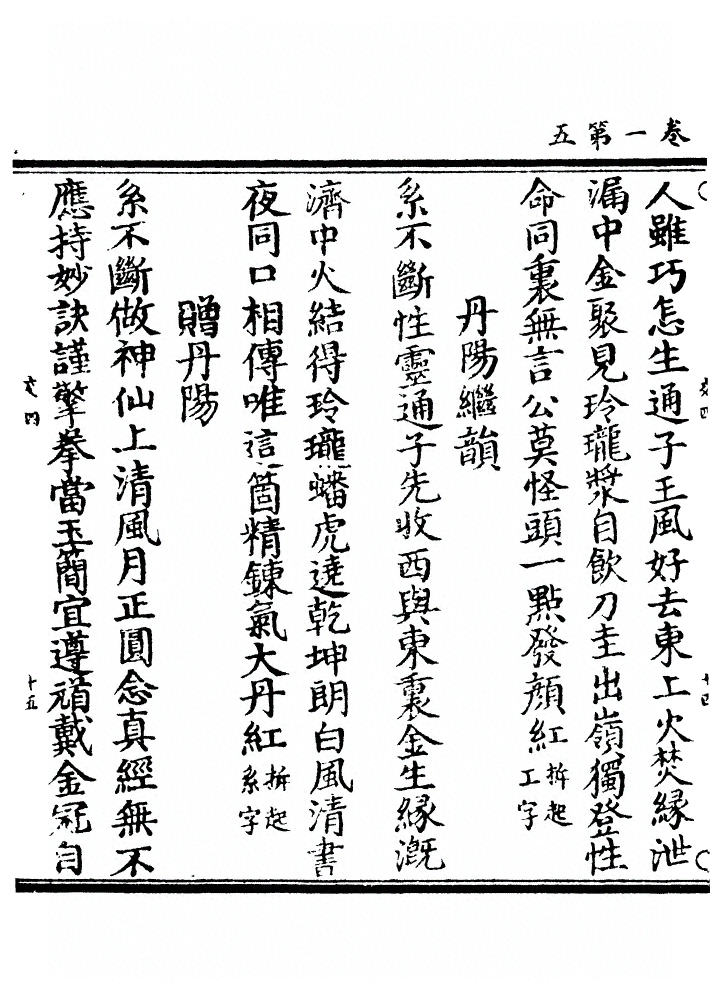 卷一第五
人雖巧怎生通子王風好去東上火焚緣泄
漏中金聚見玲瓏漿自飲刀圭出嶺獨登性
命同裏無言公莫怪頭一點發顏紅拆起工字
丹陽繼韻
糸不斷性靈通子先收西與東裏金生緣溉
濟中火結得玲瓏蟠虎遶乾坤朗白風清書
夜同口相傳唯這箇精鍊氣大丹紅拆起糸字
贈丹陽
糸不斷做神仙上清風月正圓念真經無不
應持妙訣謹擎拳當玉蕑宜遵頑戴金冠自
交四
十四
交四
十五